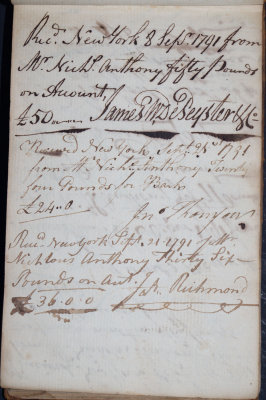 Recd. New York 8 Sepr. 1791 from
Mr. Nichs. Anthony fifty Pounds
on Account.
£50 James W DePeyster & Co
Received New York, Sept. 21st 1791
from Mr. Nichs Anthony Twenty
four Pounds for
£24.0 Jno
Recd. New York Sept. 21 1791 of Mr.
Nichlous Anthony Thirty Six
Pounds on Act.
£36.0.0 Richmond